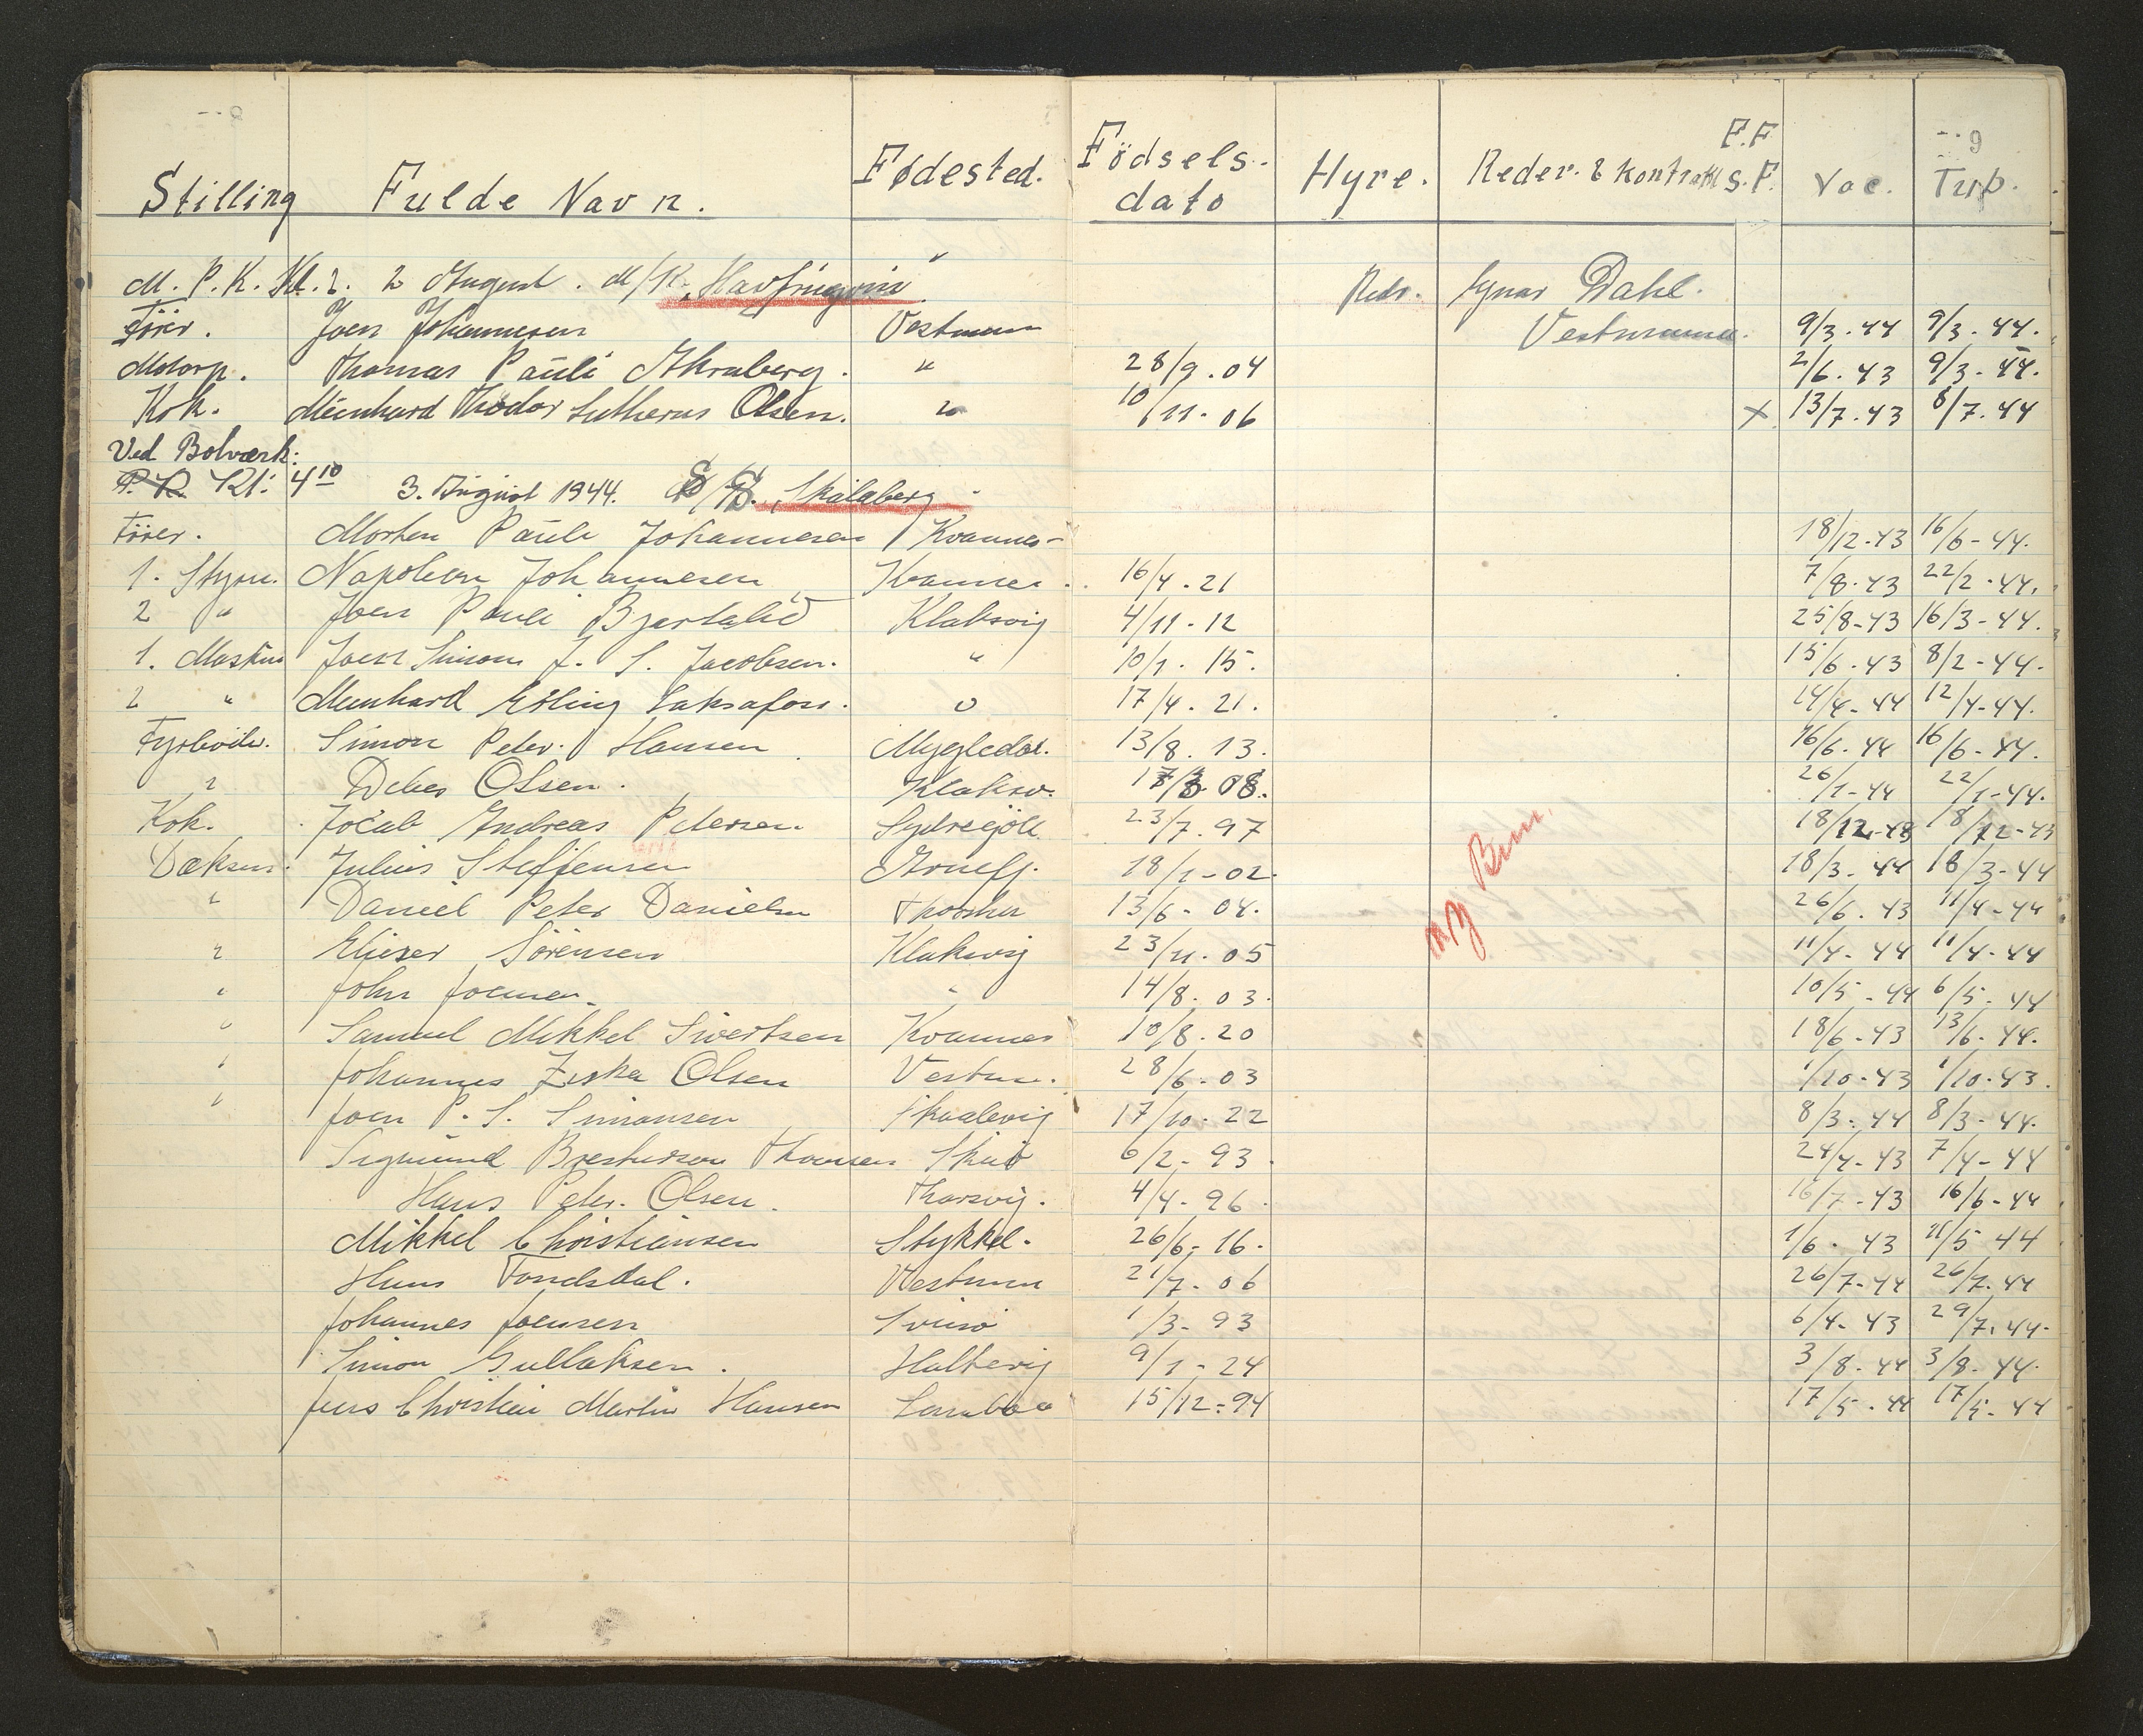 Stilling Fulde Navn. Fødested. Födsels-dato Hyre. Reder. & Kontrakt F.F S.F. Vac. Tup. 9
M. P. K. Kl. 2. 2 August. M/K. "Havfrugvin" Redr. Dahl.
Förer. Joen Johannesen Vestmann Vestmanna. 9/3.44 9/3.44.
Motorp. Thomas Pauli Akraberg. " 28/9.04 2/6.43 9/3.44.
Kok. Meinhard Thodor Lutherus Olsen. " 10/11.06 X 13/7.43 8/7.44
Ved Bolværk:
P. K. Kl: 4 10 3. August 1944. S/S. "Skálaberg"
Förer. Morten Pauli Johannesen Kvannes- 18/12-43 16/6-44.
1. Styrm. Napoleon Johannesen Kvannes. 16/4.21 7/8.43 22/2.44.
2 " Joen Pauli Bjartalid Klaksvig 4/11-12 25/8-43 16/3-44.
1. Maskin Joen Simon J. S. Jacobsen. " 10/1.15. 15/6.43 8/2-44.
2 " Meinhard Esling " 17/4.21. 14/4-44 12/4-44.
Fyrböder. Simon Peter Hansen Mygledal. 13/8.13. 16/6.44 16/6-44.
" Debes Olsen. Klaksv. 08. 26/1-44 22/1-44.
Kok. Jocab Andreas Petersen 23/7.97 18/12-43 18/12-43
Dæksm. Julius Steffensen 18/1-02. 18/3-44 18/3-44
" Daniel Peter Danielsen Thorshn 13/6-04. 26/6.43 11/4-44
" Elieser Sörensen Klaksvig 23/11.05 11/4-44 11/4-44
" John Joensen. " 14/8.03. 10/5-44 6/5-44
" Samuel Mikkel Sivertsen Kvannes 10/8.20 18/6-43 13/6-44.
" Johannes Ziska Olsen Vestm. 28/6-03 1/10-43 1/10-43.
" Joen P. S. Simonsen Skaalevig 17/10-22 8/3-44 8/3-44.
Sigmund Brestesen Thomsen 6/2-93. 24/4-43 7/4-44
Hans Peter Olsen. 4/4-96 16/7-43 16/6-44
Mikkel Christiansen Stykkel. 26/6-16. 1/6.43 11/5 44
Hans Fondsdal. Vestman 21/7-06 26/7-44 26/7.44
Johannes Joensen Svinö 1/3-93 6/4-43 29/7.44.
Simon Gullaksen. Haltevig 9/1-24 3/8-44 3/8-44.
Jens Christian Martin Hansen Lambaa 15/12-94 17/5-44 17/5-44